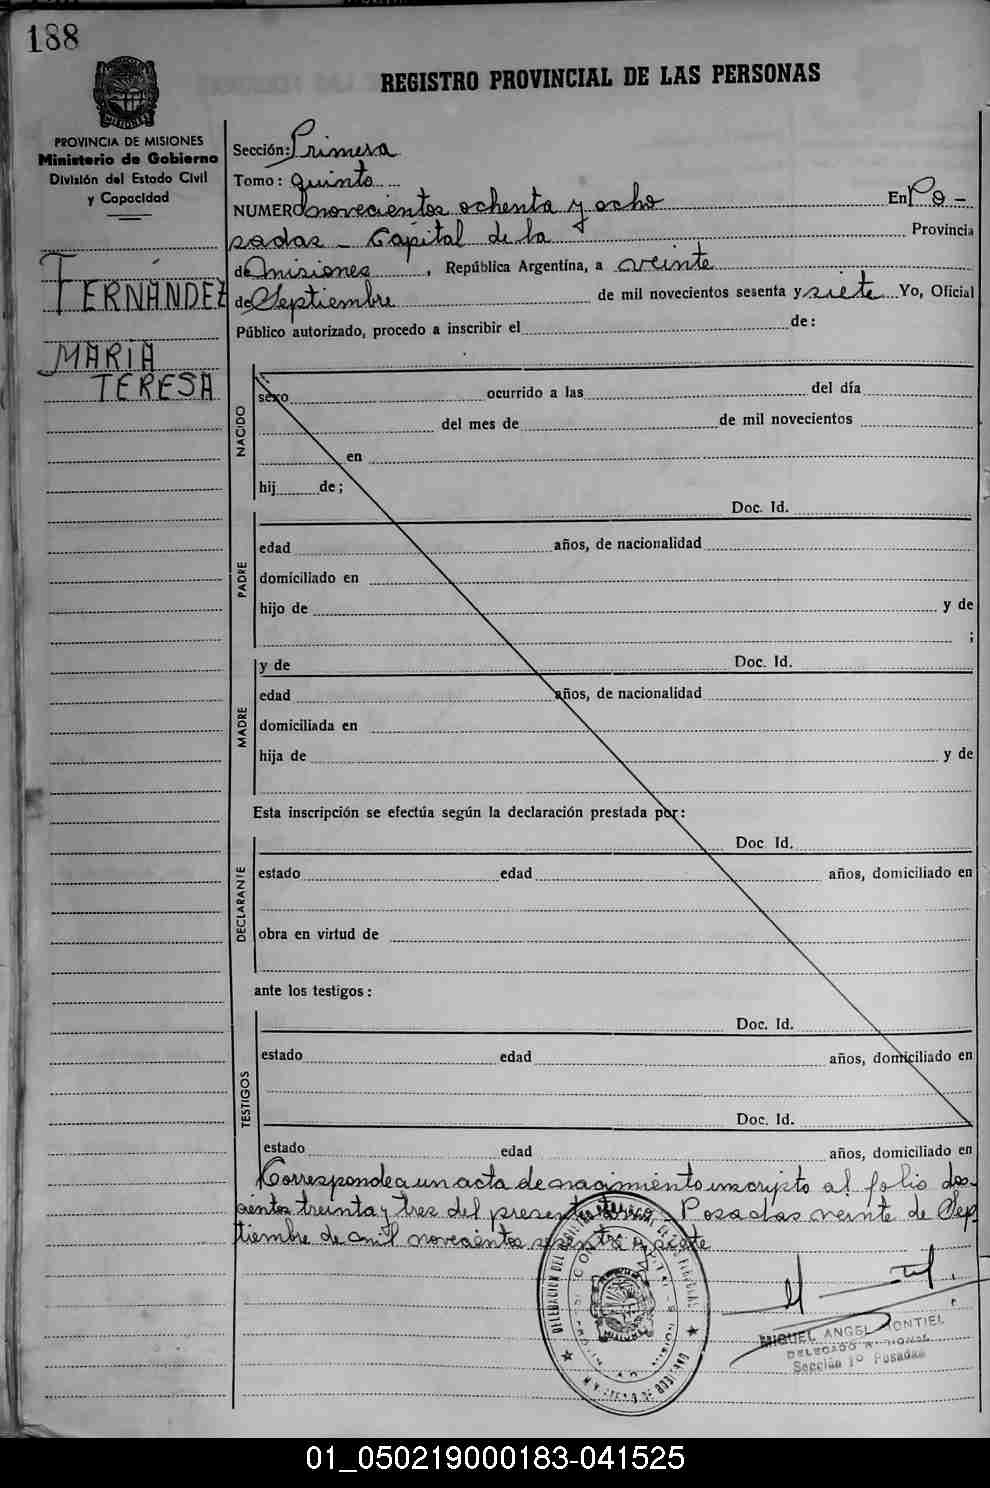 188
REGISTRO PROVINCIAL DE LAS PERSONAS
PROVINCIA DE MISIONES
Ministerio de Gobierno
División del Estado Civil
y Capacidad
FERNÁNDEZ
MARIA
TERESA
Sección: Primera
Tomo: quinto
NUMERO novecientos ochenta y ocho En Po-
sadas - Capital de la Provincia
de Misiones, República Argentina, a veinte
de Septiembre de mil novecientos sesenta y siete Yo, Oficial
Público autorizado, procedo a inscribir el de:
NACIDO
sexo ocurrido a las del día
del mes de de mil novecientos
en
hij de;
PADRE
Doc. Id.
edad años, de nacionalidad
domiciliado en
hijo de y de
;
MADRE
y de Doc. Id.
edad años, de nacionalidad
domiciliada en
hija de y de
Esta inscripción se efectúa según la declaración prestada por:
DECLARANTE
Doc. Id.
estado edad años, domiciliado en
obra en virtud de
ante los testigos:
TESTIGOS
Doc. Id.
estado edad años, domiciliado en
Doc. Id.
estado edad años, domiciliado en
Corresponde a un acta de nacimiento inscripto al folio dos-
cientos treinta y tres del presente tomo. Posadas veinte de Sep-
tiembre de mil novecientos sesenta y siete
MIGUEL ANGEL MONTIEL
DELEGADO
Sección 1º Posadas
01_050219000183-041525